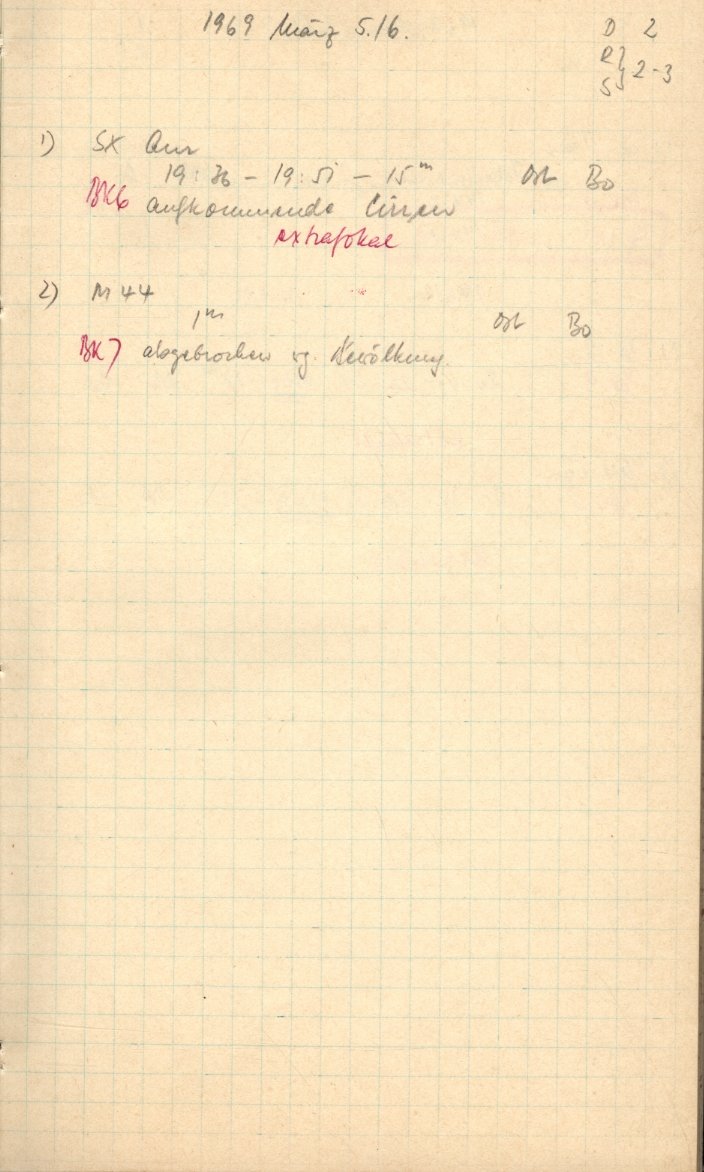 1969 März 5./6.
D 2
R } 2-3
S
1) SX Aur
19:36 - 19:51 - 15ᵐ Ost Bo
BK6 aufkommende Cirren
extrafokal
2) M 44
1ᵐ Ost Bo
BK7 abgebrochen wg. Bewölkung.